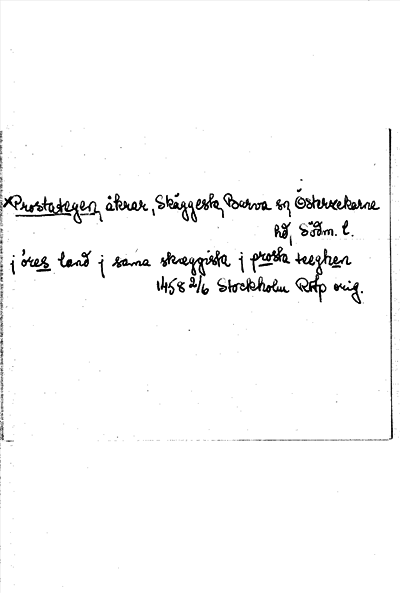 ×Prostategen, åkrar, Skäggesta, Barva sn, Österrekarne
hd, Södm. l.
j öres land j sama skæggista j prosta teeghen
1458 2/6 Stockholm RAp orig.